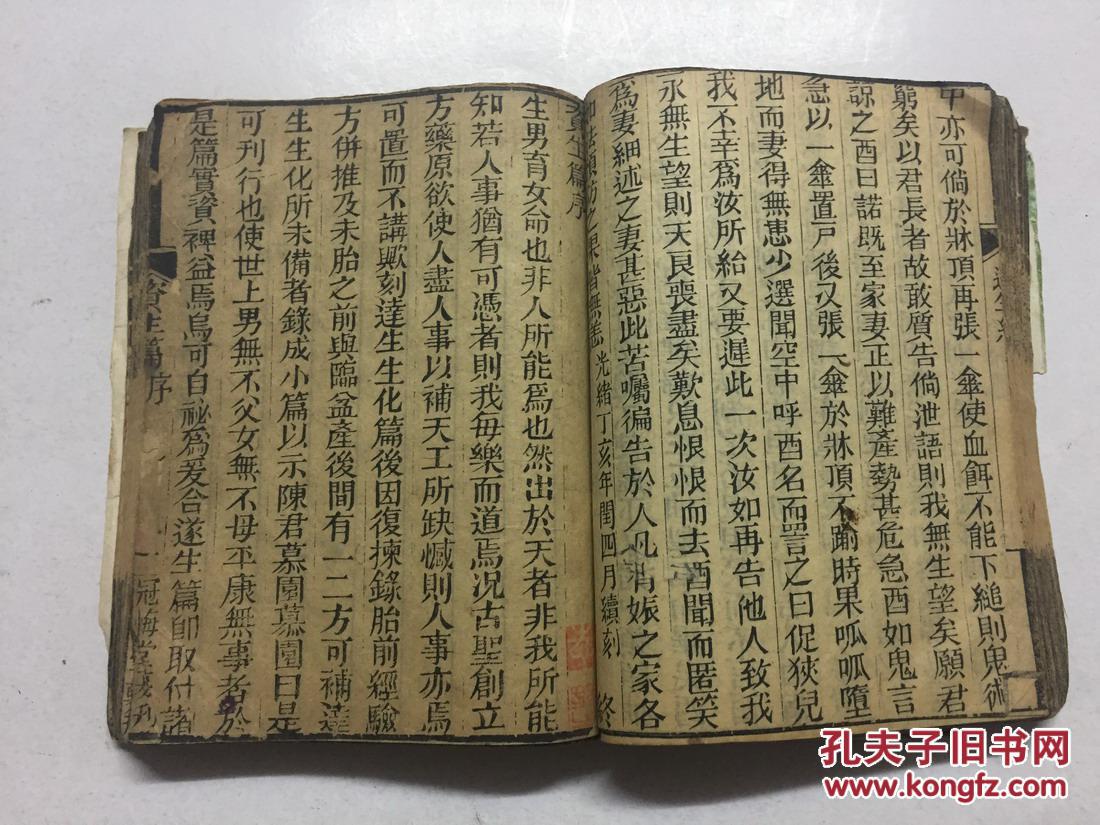 中亦可倘於牀頂再張一傘使血餌不能下縋則鬼術
窮矣以君長者故敢質告倘泄語則我無生望矣願君
諒之酉曰諾既至家妻正以難產勢甚危急酉如鬼言
急以一傘置戸後又張一傘於牀頂不踰時果呱呱墮
地而妻得無恙少選聞空中呼酉名而詈之曰促狹兒
我不幸爲汝所紿又要遲此一次汝如再告他人致我
永無生望則天良喪盡矣歎息恨恨而去酉聞而匿笑
爲妻細述之妻甚惡此苦囑徧告於人凡有娠之家各
如法預防之果皆無恙 光緒丁亥年閏四月續刻 終
資生篇序
生男育女命也非人所能爲也然出於天者非我所能
知若人事猶有可憑者則我每樂而道焉况古聖創立
方藥原欲使人盡人事以補天工所缺憾則人事亦焉
可置而不講歟刻達生生化篇後因復揀錄胎前經驗
方併推及未胎之前與臨盆產後間有一二方可補達
生生化所未備者錄成小篇以示陳君慕園慕園曰是
可刊行也使世上男無不父女無不母平康無事者於
是篇實資裨益焉烏可自祕爲爰合遂生篇卽取付諸
資生篇 序 一 冠悔堂
孔夫子旧书网
www.kongfz.com